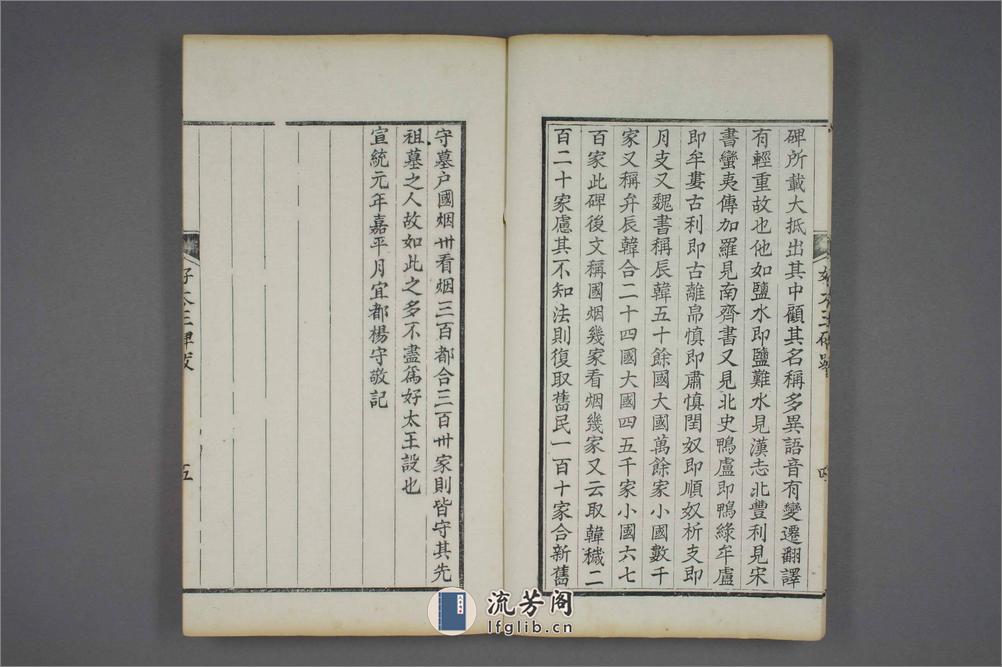 碑所載大抵出其中顧其名稱多異語音有變遷翻譯
有輕重故也他如鹽水即鹽難水見漢志北豐利見宋
書蠻夷傳加羅見南齊書又見北史鴨盧即鴨綠牟盧
即牟婁古利即古離帛慎即肅慎閏奴即順奴析支即
月支又魏書稱辰韓五十餘國大國萬餘家小國數千
家又稱弁辰韓合二十四國大國四五千家小國六七
百家此碑後文稱國烟幾家看烟幾家又云取韓穢二
百二十家慮其不知法則復取舊民一百十家合新舊
守墓户國烟卅看烟三百都合三百卅家則皆守其先
祖墓之人故如此之多不盡為好太王設也
宣統元年嘉平月宜都楊守敬記
好太王碑跋
五
流芳阁
lfglib.cn